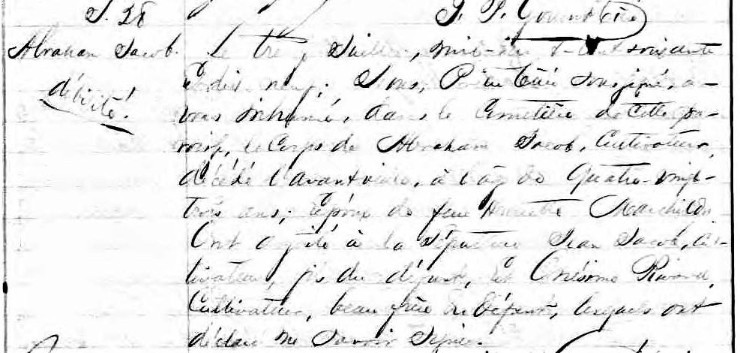 S. 28
Abraham Jacob.
décédé.
Le trois Juillet, mil-huit-cent soixante
et dix neuf; Nous, Prêtre Curé soussigné a-
vons inhumé, dans le Cimetière de cette pa-
roisse, le corps de Abraham Jacob, Cultivateur,
décédé l'avant veille, à l'âge de Quatre-vingt-
trois ans; époux de feue Henriette Marchildon.
Ont assisté à la sépulture Jean Jacob, Cul-
tivateur, fils du défunt, et Onésime Rivard,
Cultivateur, beau frère du défunt, lesquels ont
déclaré ne savoir signer.